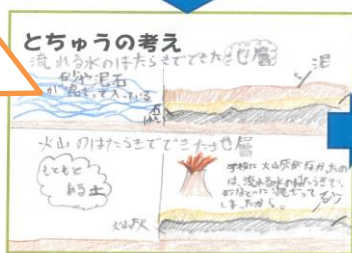 とちゅうの考え
流れる水のはたらきでできた地層
砂や泥石
が混ざって入っている
泥
火山のはたらきでできた地層
もともと
ある土
火山灰
学校に火山灰がなかったの
は、流れる水のはたらきで、
混ざって
しまったから。